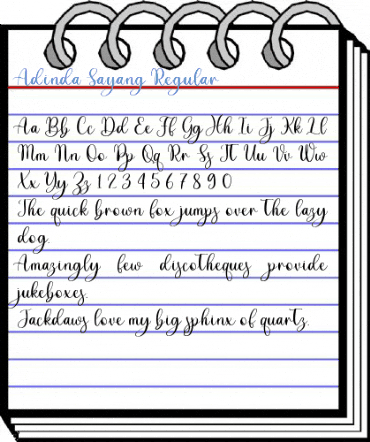 Adinda Sayang Regular
Aa Bb Cc Dd Ee Ff Gg Hh Ii Jj Kk Ll
Mm Nn Oo Pp Qq Rr Ss Tt Uu Vv Ww
Xx Yy Zz 1 2 3 4 5 6 7 8 9 0
The quick brown fox jumps over the lazy
dog.
Amazingly few discotheques provide
jukeboxes.
Jackdaws love my big sphinx of quartz.